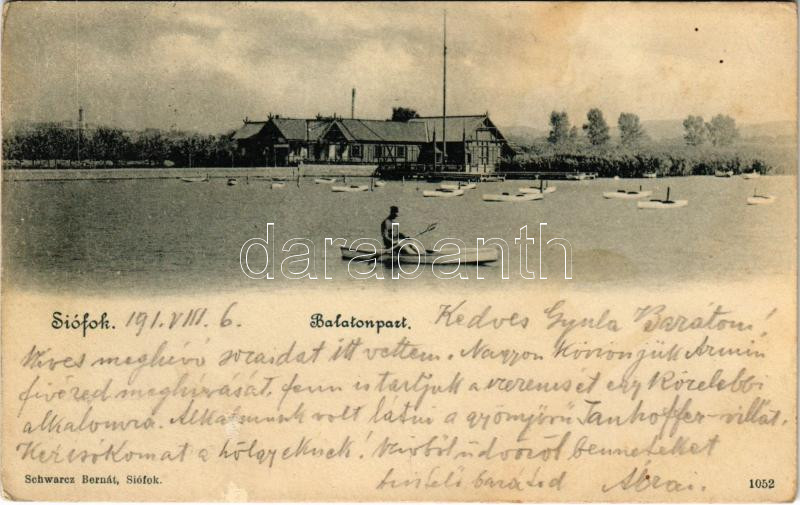 darabanth
Siófok. 191. VIII. 6. Balatonpart. Kedves Gyula Barátom!
Szives meghívó soraidat itt vettem. Nagyon köszönjük Armin
fivéred meghivását, fenn is tartjuk a szerencsét egy közelebbi
alkalomra. Alkalmunk volt látni a gyönyörű Tauhoffer-villát.
Kézcsókomat a hölgyeknek! Szivből üdvözöl benneteket
barátod
Schwarcz Bernát, Siófok. 1052